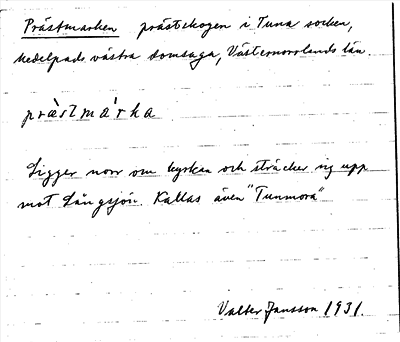 Prästmarken prästskogen i Tuna socken,
Medelpads västra domsaga, Västernorrlands län.
prästmarka
Ligger norr om kyrkan och sträcker sig upp
mot Långsjön. Kallas även "Tunmora"
Valter Jansson 1931.